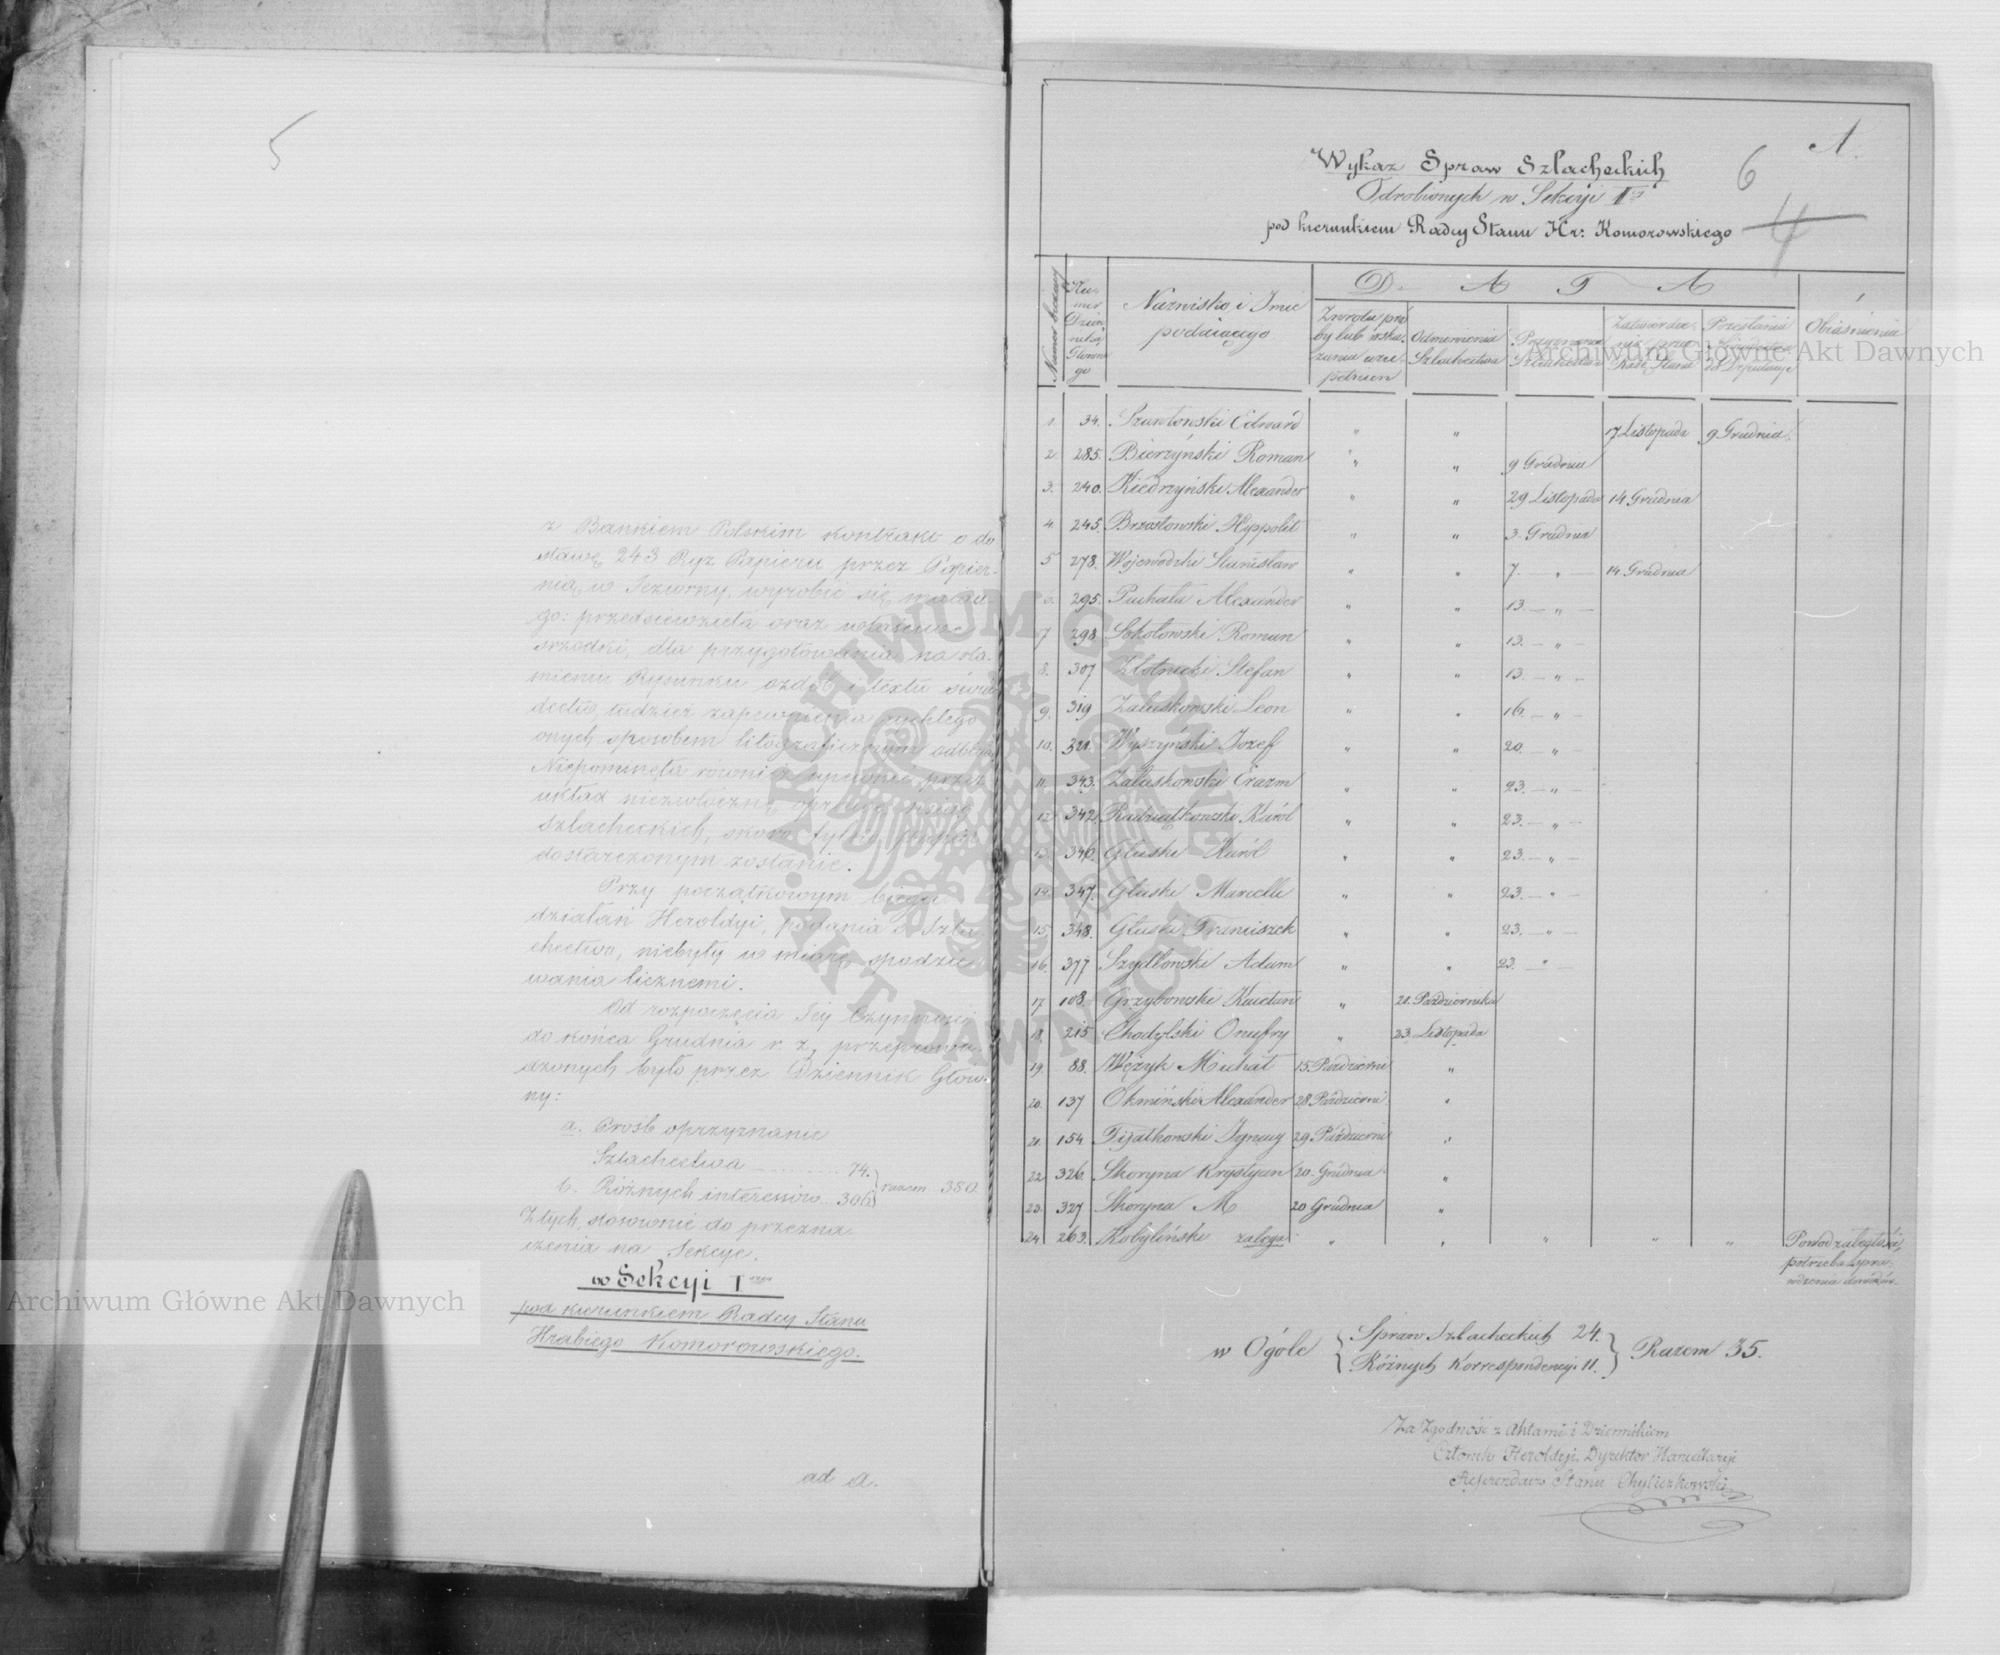 5
z Bankiem Polskim kontrakt o do
stawę 243 Ryz Papieru przez Papier-
nią w Jeziorny, wyrobić się mające-
go: przedsiewzięła oraz właściwe
srzodki, dla przygotowania na ka-
mieniu Rysunku ozdób i textu świa
dectw, tudzież zapewnienia rychłego
onych sposobem litograficznym odbicia
Niepominęła również upewnić przez
układ niezwłoczną oprawę ksiąg
Szlacheckich, skoro tylko papier
dostarczonym zostanie.
Przy początkowym biegu
działań Heroldyi, podania o Szla
chectwo, niebyły w miarę spodzie
wania licznemi.
Od rozpoczęcia Jey Czynności
do końca Grudnia r. z. przeprowa
dzonych było przez Dziennik Głów
ny:
a. Prosb o przyznanie
Szlachectwa 74.
b. Różnych interessów 306 razem 380
Z tych, stosownie do przezna
czenia na Sekcye.
w Sekcyi I
pod kierunkiem Radcy Stanu
Hrabiego Komorowskiego.
ad A.
A.
6
4
Wykaz Spraw Szlacheckich
Odrobionych w Sekcyi I
pod kierunkiem Radcy Stanu Hr: Komorowskiego
Numer bieżący Nu-mer Dzien-nika Główne-go Nazwisko i Imie podaiącego D A T A Obiaśnienia
Zwrotu pró by lub wska-zania uzu-pełnien Odmówienia Szlachectwa Przyznania Szlachectwa Zatwierdze-nia przez Radę Stanu Przesłania do Deputacyi
1. 34. Szawłowski Edward " " 17 Listopada 9 Grudnia
2 285. Bierzyński Roman " " 9 Grudnia
3. 240. Kiedrzyński Alexander " " 29 Listopada 14 Grudnia
4. 245. Brzostowski Hyppolit " " 3. Grudnia
5 278. Wojewodzki Stanisław " " 7. — " — 14 Grudnia
6. 295. Puchała Alexander " " 13. — " —
7 298 Sokołowski Roman " " 13. — " —
8. 307 Złotnicki Stefan " " 13. — " —
9. 319 Załuskowski Leon " " 16. — " —
10. 321. Wyszyński Jozef " " 20. — " —
11 343. Załuskowski Erazm " " 23. — " —
12 342. Radziątkowski Karól " " 23. — " —
13. 346. Głuski Karól " " 23. — " —
14. 347. Głuski Marcelli " " 23. — " —
15. 348. Głuski Franciszek " " 23. — " —
16. 377 Szydłowski Adam " " 23. — " —
17 108. Grzybowski Kaietan " 21. Pazdziernika
18. 215 Chodylski Onufry " 23. Listopada
19. 88. Wężyk Michał 15. Pazdzierni "
20. 137 Okmiński Alexander 28 Pazdzierni "
21. 154 Figatkowski Ignacy 29 Pazdzierni "
22 326. Skoryna Krystyan 20. Grudnia "
23. 327 Skoryna M 20 Grudnia "
24 263. Kobyliński zalega " " " " " Powod zaległości,
potrzeba spra-
wdzenia dowodów.
w Ogóle { Spraw Szlacheckich 24. Różnych Korrespondencyi 11. } Razem 35.
Za Zgodność z Aktami i Dziennikiem
Członek Heroldyi, Dyrektor Kancellaryi
Referendarz Stanu Chyliczkowski
Archiwum Główne Akt Dawnych
Archiwum Główne Akt Dawnych
ARCHIWUM GŁÓWNE AKT DAWNYCH